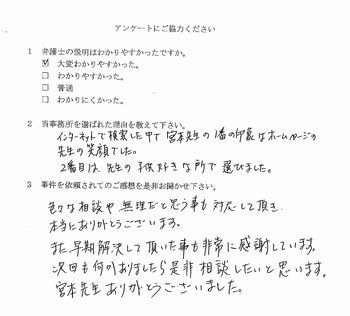 アンケートにご協力ください
1 弁護士の説明はわかりやすかったですか。
☑ 大変わかりやすかった。
□ わかりやすかった。
□ 普通
□ わかりにくかった。
2 当事務所を選ばれた理由を教えて下さい。
インターネットで検索した中で宮本先生の1番の印象はホームページの
先生の笑顔でした。
2番目は、先生の子供好きな所で選びました。
3 事件を依頼されてのご感想を是非お聞かせ下さい。
色々な相談や無理だと思う事も対応して頂き、
本当にありがとうございます。
また早期解決して頂いた事も非常に感謝しています。
次回も何かありましたら是非相談したいと思います。
宮本先生ありがとうございました。